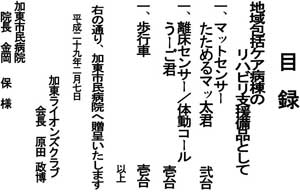 目録
地域包括ケア病棟の
リハビリ支援備品として
一、マットセンサー
たためるマッ太君 弐台
一、離床センサー／体動コール
うーご君 壱台
一、歩行車 壱台
以上
右の通り、加東市民病院へ贈呈いたします
平成二十九年二月七日
加東ライオンズクラブ
会長 原田 政博
加東市民病院
院長 金岡 保 様